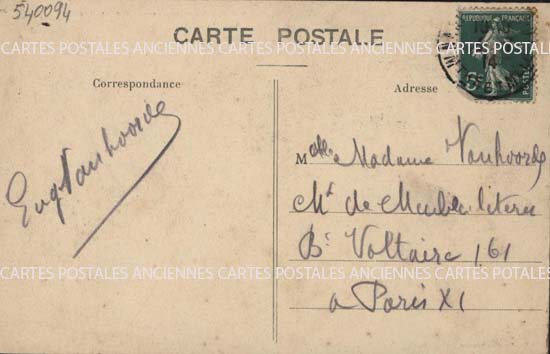 540094
CARTE POSTALE
CARTES POSTALES ANCIENNES CARTES POSTALES ANCIENNES CARTES POSTALES
Correspondance
Adresse
REPUBLIQUE FRANÇAISE
Eug Vanhoorde
M Madame Vanhoorde
Mt de Meubles literie
Bd Voltaire 161
a Paris XI
CARTES POSTALES ANCIENNES CARTES POSTALES ANCIENNES CARTES POSTALES